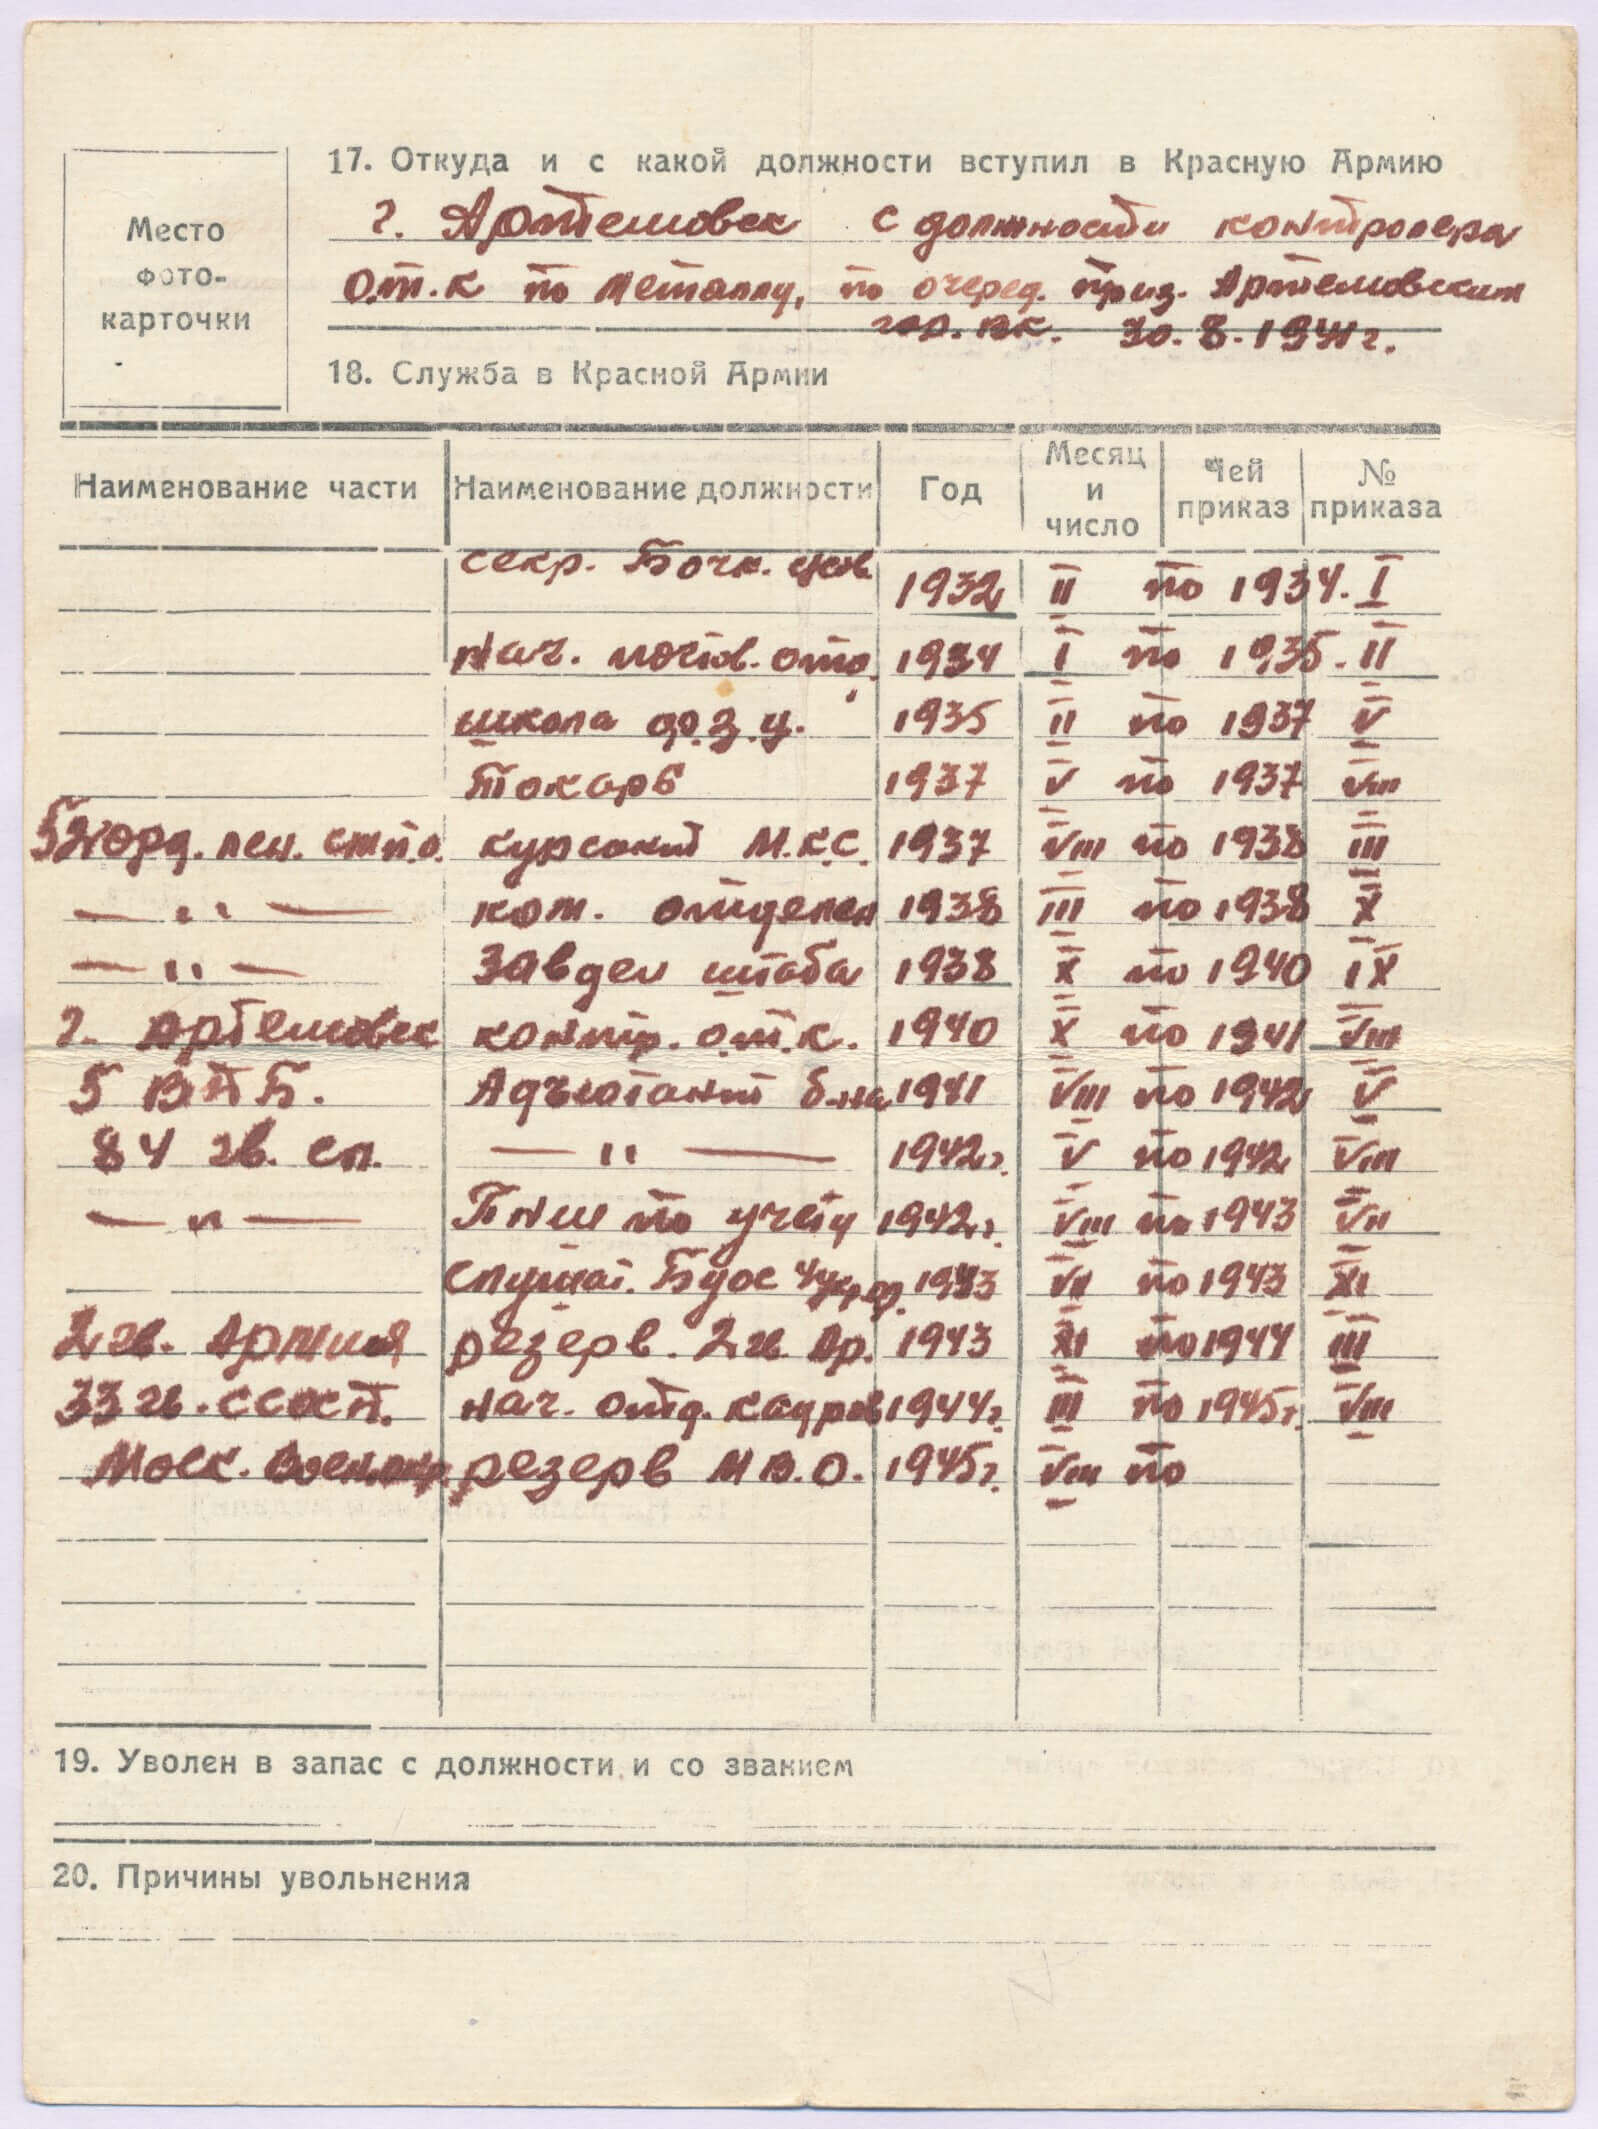 Место
фото-
карточки
17. Откуда и с какой должности вступил в Красную Армию
г. Артемовск с должности контролера
О.т.к по металлу, по очеред. приз. Артемовским
гор. вк. 30.8.1941 г.
18. Служба в Красной Армии
Наименование части Наименование должности Год Месяц и число Чей приказ № приказа
секр. 1932 II по 1934. I
нач. почтов. отд. 1934 I по 1935. II
школа ф.з.у. 1935 II по 1937 V
Токарь 1937 V по 1937 VIII
орд. лен. курсант М.К.С. 1937 VIII по 1938 III
— „ — ком. отделен 1938 III по 1938 X
— „ — Завдел штаба 1938 X по 1940 IX
г. Артемовск контр. о.т.к. 1940 X по 1941 VIII
5 ВПБ. Адъютант б-на 1941 VIII по 1942 V
84 гв. сп. — „ — 1942 г. V по 1942 VIII
— „ — ПНШ по учету 1942 г. VIII по 1943 VII
слушат. 4 укр. ф. 1943 VII по 1943 XI
2 гв. Армия резерв. 2 гв. Ар. 1943 XI по 1944 III
33 гв. нач. отд. кадров 1944 г. III по 1945 г. VIII
Моск. Воен. окр. резерв М В.О. 1945 г. VIII по
19. Уволен в запас с должности и со званием
20. Причины увольнения